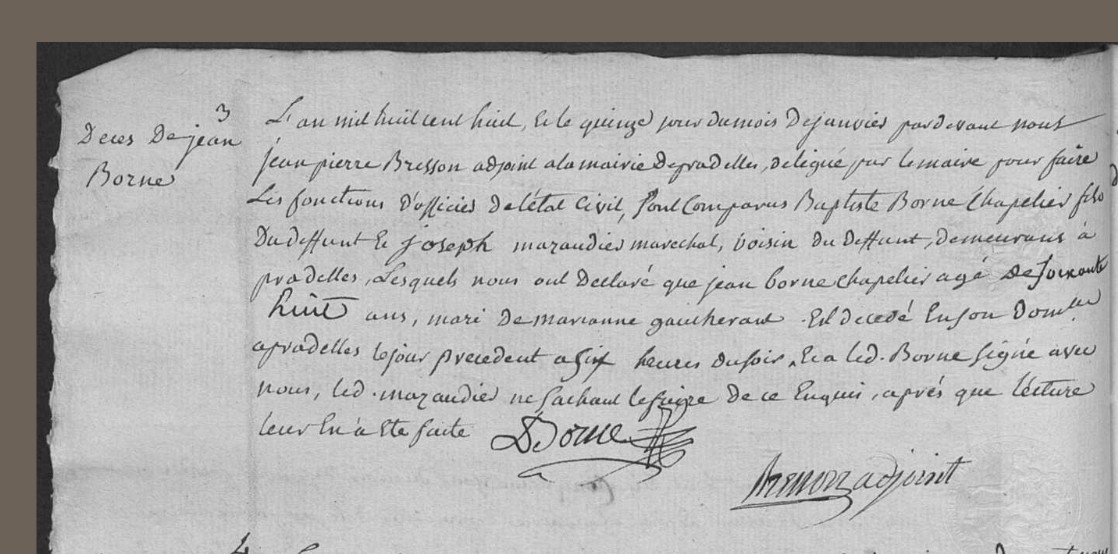 3
Deces De jean
Borne
L'an mil huit cent huit, Et le quinze jour du mois De janvier pardevant nous
jean pierre Bresson adjoint a la mairie de pradelles, delégué par le maire pour faire
Les fonctions D'officier de l'état Civil, sont Comparus Baptiste Borne Chapelier fils
Du deffunt Et joseph mazaudier marechal, voisin du Deffunt, demeurans à
pradelles, Lesquels nous ont Declaré que jean borne chapelier agé de soixante
huit ans, mari De marianne gaucherant Est decedé En son Dom.le
a pradelles le jour precedent a six heures du soir, Et a led. Borne signé avec
nous, led. mazaudier ne sachant le faire De ce Enquis, aprés que lecture
leur En à Eté faite Borne
Bresson adjoint
4